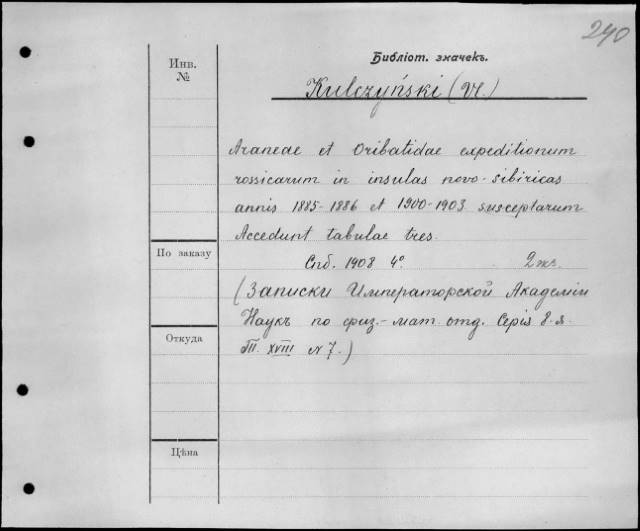 240
Библіот. значекъ.
Инв.
№
Kulczyński (Vl.)
Araneae et Oribatidae expeditionum
rossicarum in insulas novo-sibiricas
annis 1885-1886 et 1900-1903 susceptarum
Accedunt tabulae tres.
По заказу
Спб. 1908 4º. 2 экз.
(Записки Императорской Академіи
Наукъ по физ.-мат. отд. Серія 8.я.
Откуда
Т. XVIII N 7.)
Цѣна